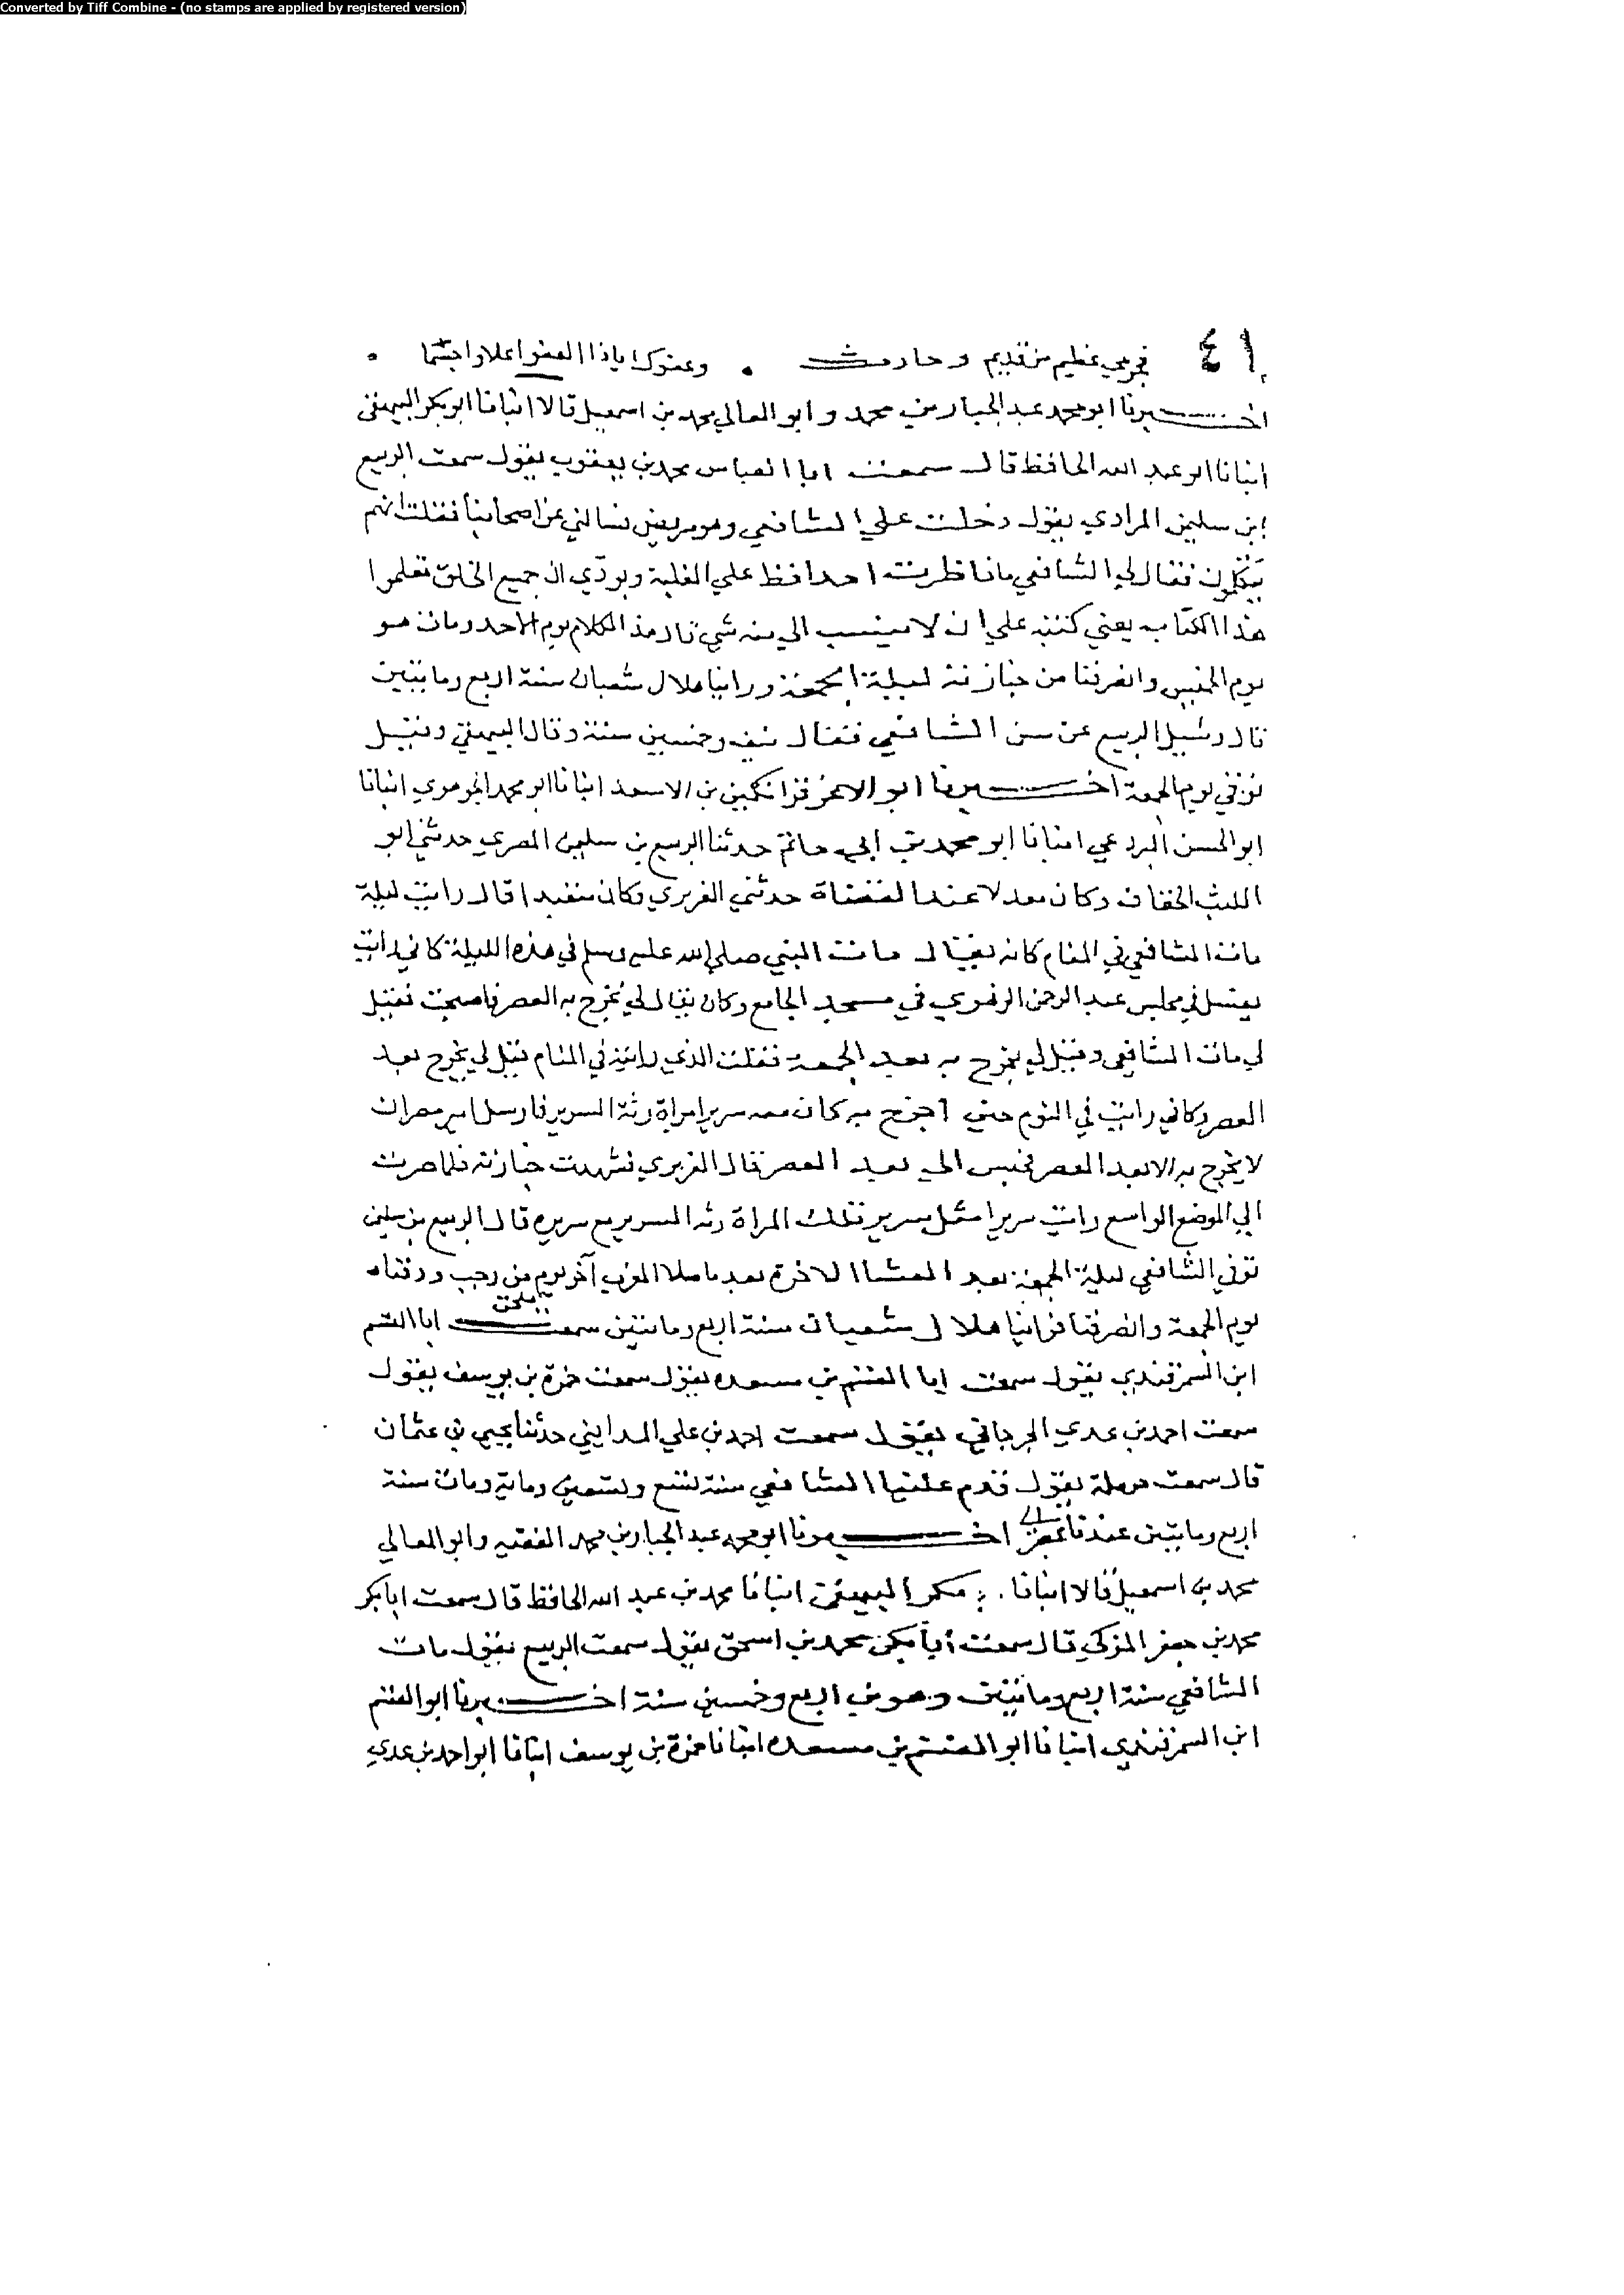 Converted by Tiff Combine - (no stamps are applied by registered version)
٤١ فجرمي عظيم من قديم وحادث . وعفوك ياذا العفو اعلا واجسما .
اخبرنا ابو محمد عبد الجبار بن محمد وابو المعالي محمد بن اسمعيل قالا انبانا ابو بكر البيهقي
انبانا ابو عبد الله الحافظ قال سمعت ابا العباس محمد بن يعقوب يقول سمعت الربيع
ابن سليمن المرادي يقول دخلت علي الشافعي وهو مريض فسالني عن اصحابنا فقلت انهم
يتكلمون فقال لي الشافعي ما ناظرت احدا قط علي الغلبة وبودّي ان جميع الخلق تعلموا
هذا الكتاب يعني كتبه علي ان لا ينسب الي منه شي قال هذا الكلام يوم الاحد ومات هو
يوم الخميس وانصرفنا من جنازته ليلة الجمعة وراينا هلال شعبان سنة اربع وماىتين
قال وسُيل الربيع عن سن الشافعي فقال نيف وخمسين سنة وقال البيهقي وقيل
توفي يوم الجمعة اخبرنا ابو الاعز قراتكين بن الاسعد انبانا ابو محمد الجوهري انبانا
ابو الحسن البردعي انبانا ابو محمد بن ابي حاتم حدثنا الربيع بن سليمن المصري حدثني ابو
الليث الخفاف وكان معدلا عند القضاة حدثني العزيزي وكان متعبدا قال رايت ليلة
مات الشافعي في المنام كانه يقال مات النبي صلي الله عليه وسلم في هذه الليلة كاني رايته
يغسل في مجلس عبد الرحمن الزهري في مسجد الجامع وكان يقال لي يُخرج به العصر فاصبحت فقيل
لي مات الشافعي وقيل لي يخرج به بعد الجمعة فقلت الذي رايته في المنام قيل لي يخرج بعد
العصر وكاني رايت في النوم حتي اخرج به كان معه سرير امراة رثة السرير فارسل امير مصر ان
لا يخرج به الا بعد العصر فحبس الي بعد العصر قال العزيزي فشهدت جنازته فلما صرت
الي الموضع الواسع رايت سريرا مثل سرير تلك المراة رثة السرير مع سريره قال الربيع بن سليمن
توفي الشافعي ليلة الجمعة بعد العشا الاخرة بعد ما صلا المغرب آخر يوم من رجب ودفناه
يوم الجمعة وانصرفنا فراينا هلال شعبان سنة اربع وماىتين سمعت ابا القسم
ابن السمرقندي يقول سمعت ابا القسم بن مسعده يقول سمعت حمزة بن يوسف يقول
سمعت احمد بن عدي الجرجاني يقول سمعت احمد بن علي المدايني حدثنا يحيي بن عثمان
قال سمعت حرملة يقول قدم علينا الشافعي سنة تسع وتسعين وماية ومات سنة
اربع ومايتين عندنا بمصر اخبرنا ابو محمد عبد الجبار بن محمد الفقيه وابو المعالي
محمد بن اسمعيل قالا انبانا ابو بكر البيهقي انبانا محمد بن عبد الله الحافظ قال سمعت ابا بكر
محمد بن جعفر المزكي قال سمعت ابا بكر محمد بن اسحق يقول سمعت الربيع يقول مات
الشافعي سنة اربع وماىتين وهو بن اربع وخمسين سنة اخبرنا ابو القسم
ابن السمرقندي انبانا ابو القسم بن مسعده انبانا حمزة بن يوسف انبانا ابو احمد بن عدي